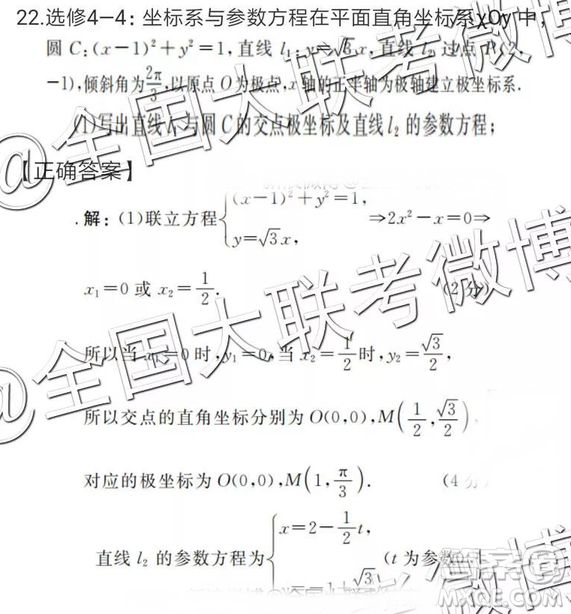 22.选修4-4：坐标系与参数方程在平面直角坐标系xOy中，
圆C:(x-1)²+y²=1,直线l₁:y=√3x,直线l₂过点P(2,
-1),倾斜角为2π/3,以原点O为极点,x轴的正半轴为极轴建立极坐标系.
(1)写出直线l₁与圆C的交点极坐标及直线l₂的参数方程;
【正确答案】
解:(1)联立方程{(x-1)²+y²=1, y=√3x, ⇒2x²-x=0⇒
x₁=0或x₂=1/2. (2分)
所以当x₁=0时,y₁=0,当x₂=1/2时,y₂=√3/2,
所以交点的直角坐标分别为O(0,0),M(1/2,√3/2).
对应的极坐标为O(0,0),M(1,π/3). (4分
直线l₂的参数方程为{x=2-1/2t, (t为参数
@全国大联考微博
@全国大联考微博